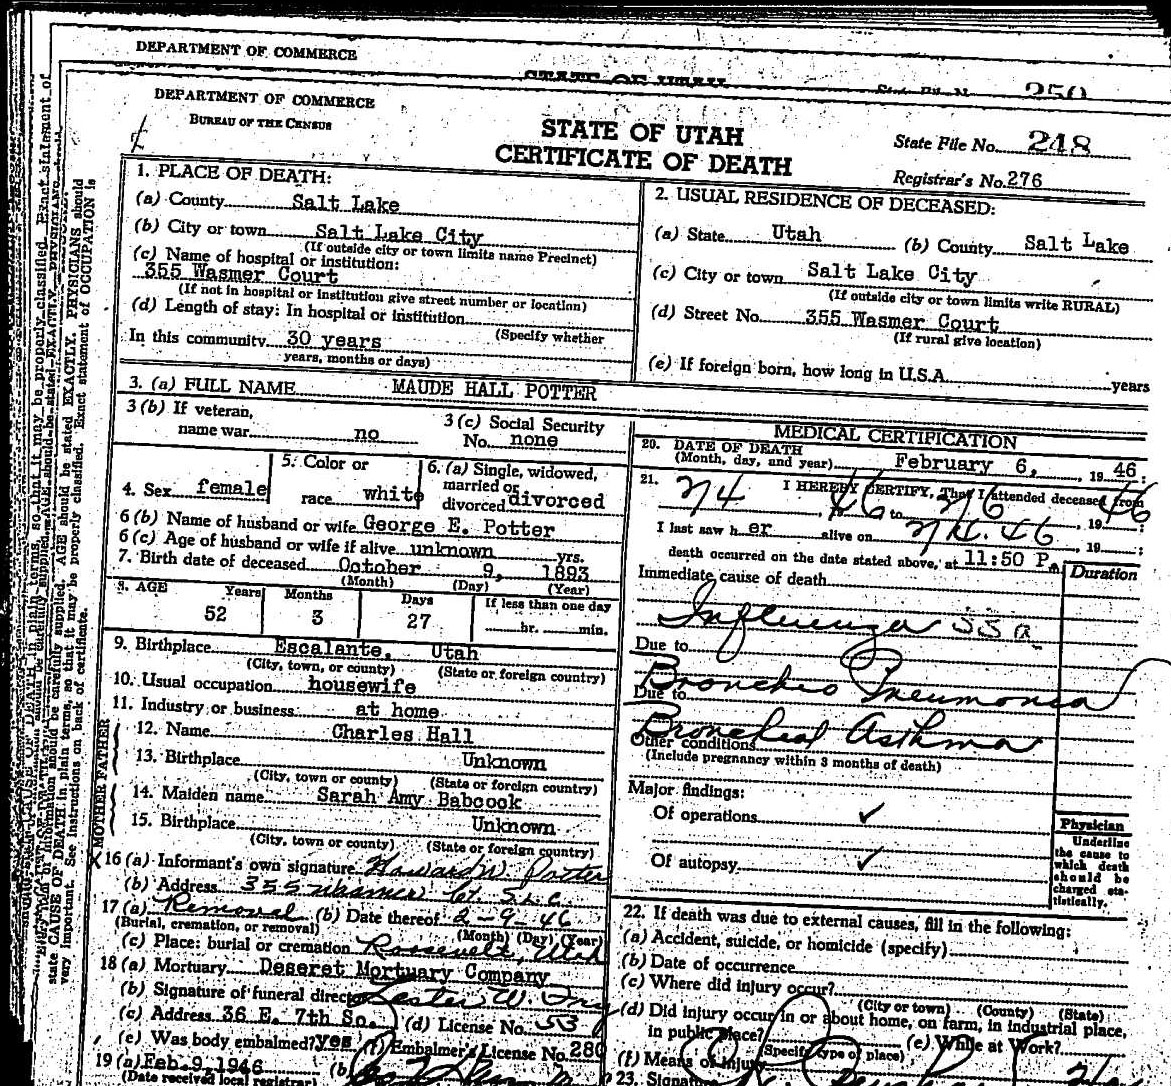 DEPARTMENT OF COMMERCE
STATE OF UTAH
250
DEPARTMENT OF COMMERCE
BUREAU OF THE CENSUS
STATE OF UTAH
CERTIFICATE OF DEATH
State File No. 248
Registrar's No. 276
1. PLACE OF DEATH:
(a) County Salt Lake
(b) City or town Salt Lake City
(If outside city or town limits name Precinct)
(c) Name of hospital or institution:
355 Wasmer Court
(If not in hospital or institution give street number or location)
(d) Length of stay: In hospital or institution
(Specify whether
In this community 30 years
years, months or days)
2. USUAL RESIDENCE OF DECEASED:
(a) State Utah (b) County Salt Lake
(c) City or town Salt Lake City
(If outside city or town limits write RURAL)
(d) Street No. 355 Wasmer Court
(If rural give location)
(e) If foreign born, how long in U.S.A. years
3. (a) FULL NAME MAUDE HALL POTTER
3 (b) If veteran,
name war no
3 (c) Social Security
No. none
4. Sex female
5. Color or
race white
6. (a) Single, widowed,
married or
divorced divorced
6 (b) Name of husband or wife George E. Potter
6 (c) Age of husband or wife if alive unknown yrs.
7. Birth date of deceased October 9, 1893
(Month) (Day) (Year)
8. AGE Years Months Days If less than one day
52 3 27 hr. min.
9. Birthplace Escalante, Utah
(City, town, or county) (State or foreign country)
10. Usual occupation housewife
11. Industry or business at home
FATHER
12. Name Charles Hall
13. Birthplace Unknown
(City, town or county) (State or foreign country)
MOTHER
14. Maiden name Sarah Amy Babcock
15. Birthplace Unknown
(City, town, or county) (State or foreign country)
X 16 (a) Informant's own signature Howard W. Potter
(b) Address 355 Wasmer Ct. S.L.C.
17 (a) Removal (b) Date thereof 2-9-46
(Burial, cremation, or removal) (Month) (Day) (Year)
(c) Place: burial or cremation Roosevelt, Utah
18 (a) Mortuary Deseret Mortuary Company
(b) Signature of funeral director Lester W.
(c) Address 36 E. 7th So. (d) License No. 53
(e) Was body embalmed? yes (f) Embalmer's License No. 280
19 (a) Feb. 9, 1946 (b)
(Date received local registrar)
MEDICAL CERTIFICATION
20. DATE OF DEATH
(Month, day, and year) February 6, 19 46 :
21. I HEREBY CERTIFY, That I attended deceased from
2/4 46 to 2/6 , 19 46
I last saw her alive on 46 , 19 ;
death occurred on the date stated above, at 11:50 P.
Duration
Immediate cause of death
Influenza
Due to
Broncho Pneumonia
Due to
Bronchial Asthma
Other conditions
(Include pregnancy within 3 months of death)
Major findings:
Of operations ✓
Of autopsy ✓
Physician
Underline
the cause to
which death
should be
charged sta-
tistically.
22. If death was due to external causes, fill in the following:
(a) Accident, suicide, or homicide (specify)
(b) Date of occurrence
(c) Where did injury occur?
(City or town) (County) (State)
(d) Did injury occur in or about home, on farm, in industrial place,
in public place? (e) While at Work?
(Specify type of place)
(f) Means of injury
23. Signature